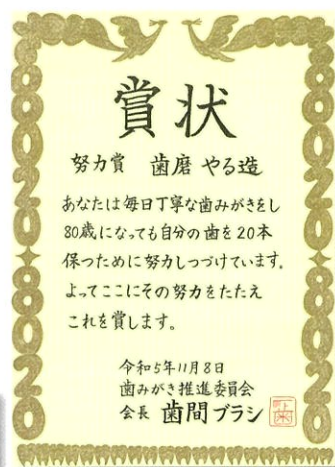 賞状
努力賞 歯磨 やる造
あなたは毎日丁寧な歯みがきをし
80歳になっても自分の歯を20本
保つために努力しつづけています。
よってここにその努力をたたえ
これを賞します。
令和5年11月8日
歯みがき推進委員会
会長 歯間ブラシ
8020 8020 8020
8020 8020 8020